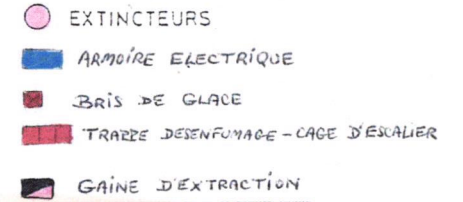 EXTINCTEURS
ARMOIRE ELECTRIQUE
BRIS DE GLACE
TRAPPE DESENFUMAGE - CAGE D'ESCALIER
GAINE D'EXTRACTION